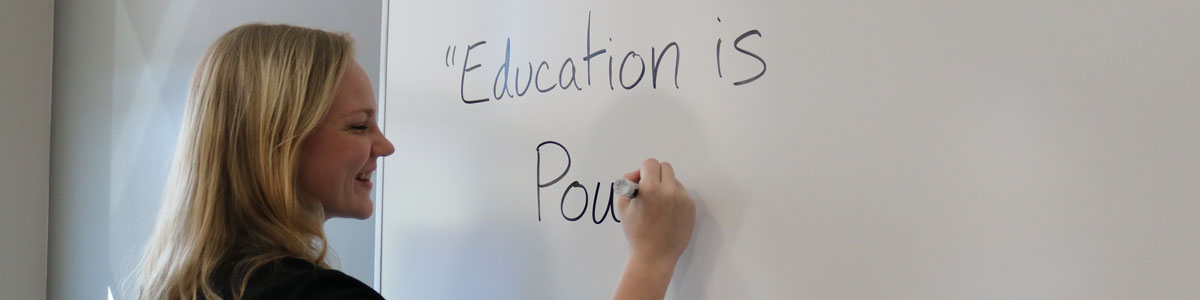 "Education is
Pou